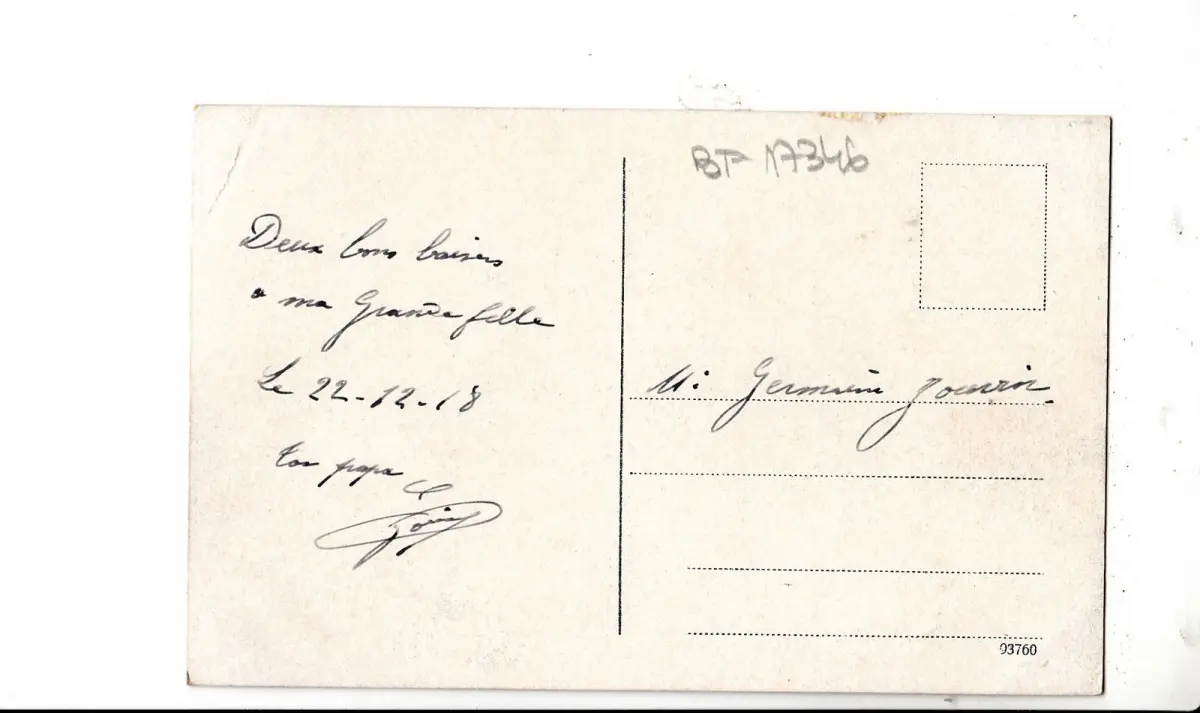 BT 17346
Deux bons baisers
a ma Grande fille
Le 22-12-18
ton papa
Mˡˡᵉ Germaine
93760